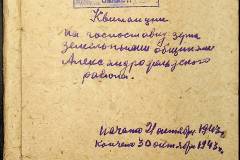 Квитанции
на госпоставку зерна
земельными общинами
Александрофельдского
района.
Начато 21 октября 1943 г.
Кончено 30 октября 1943 г.